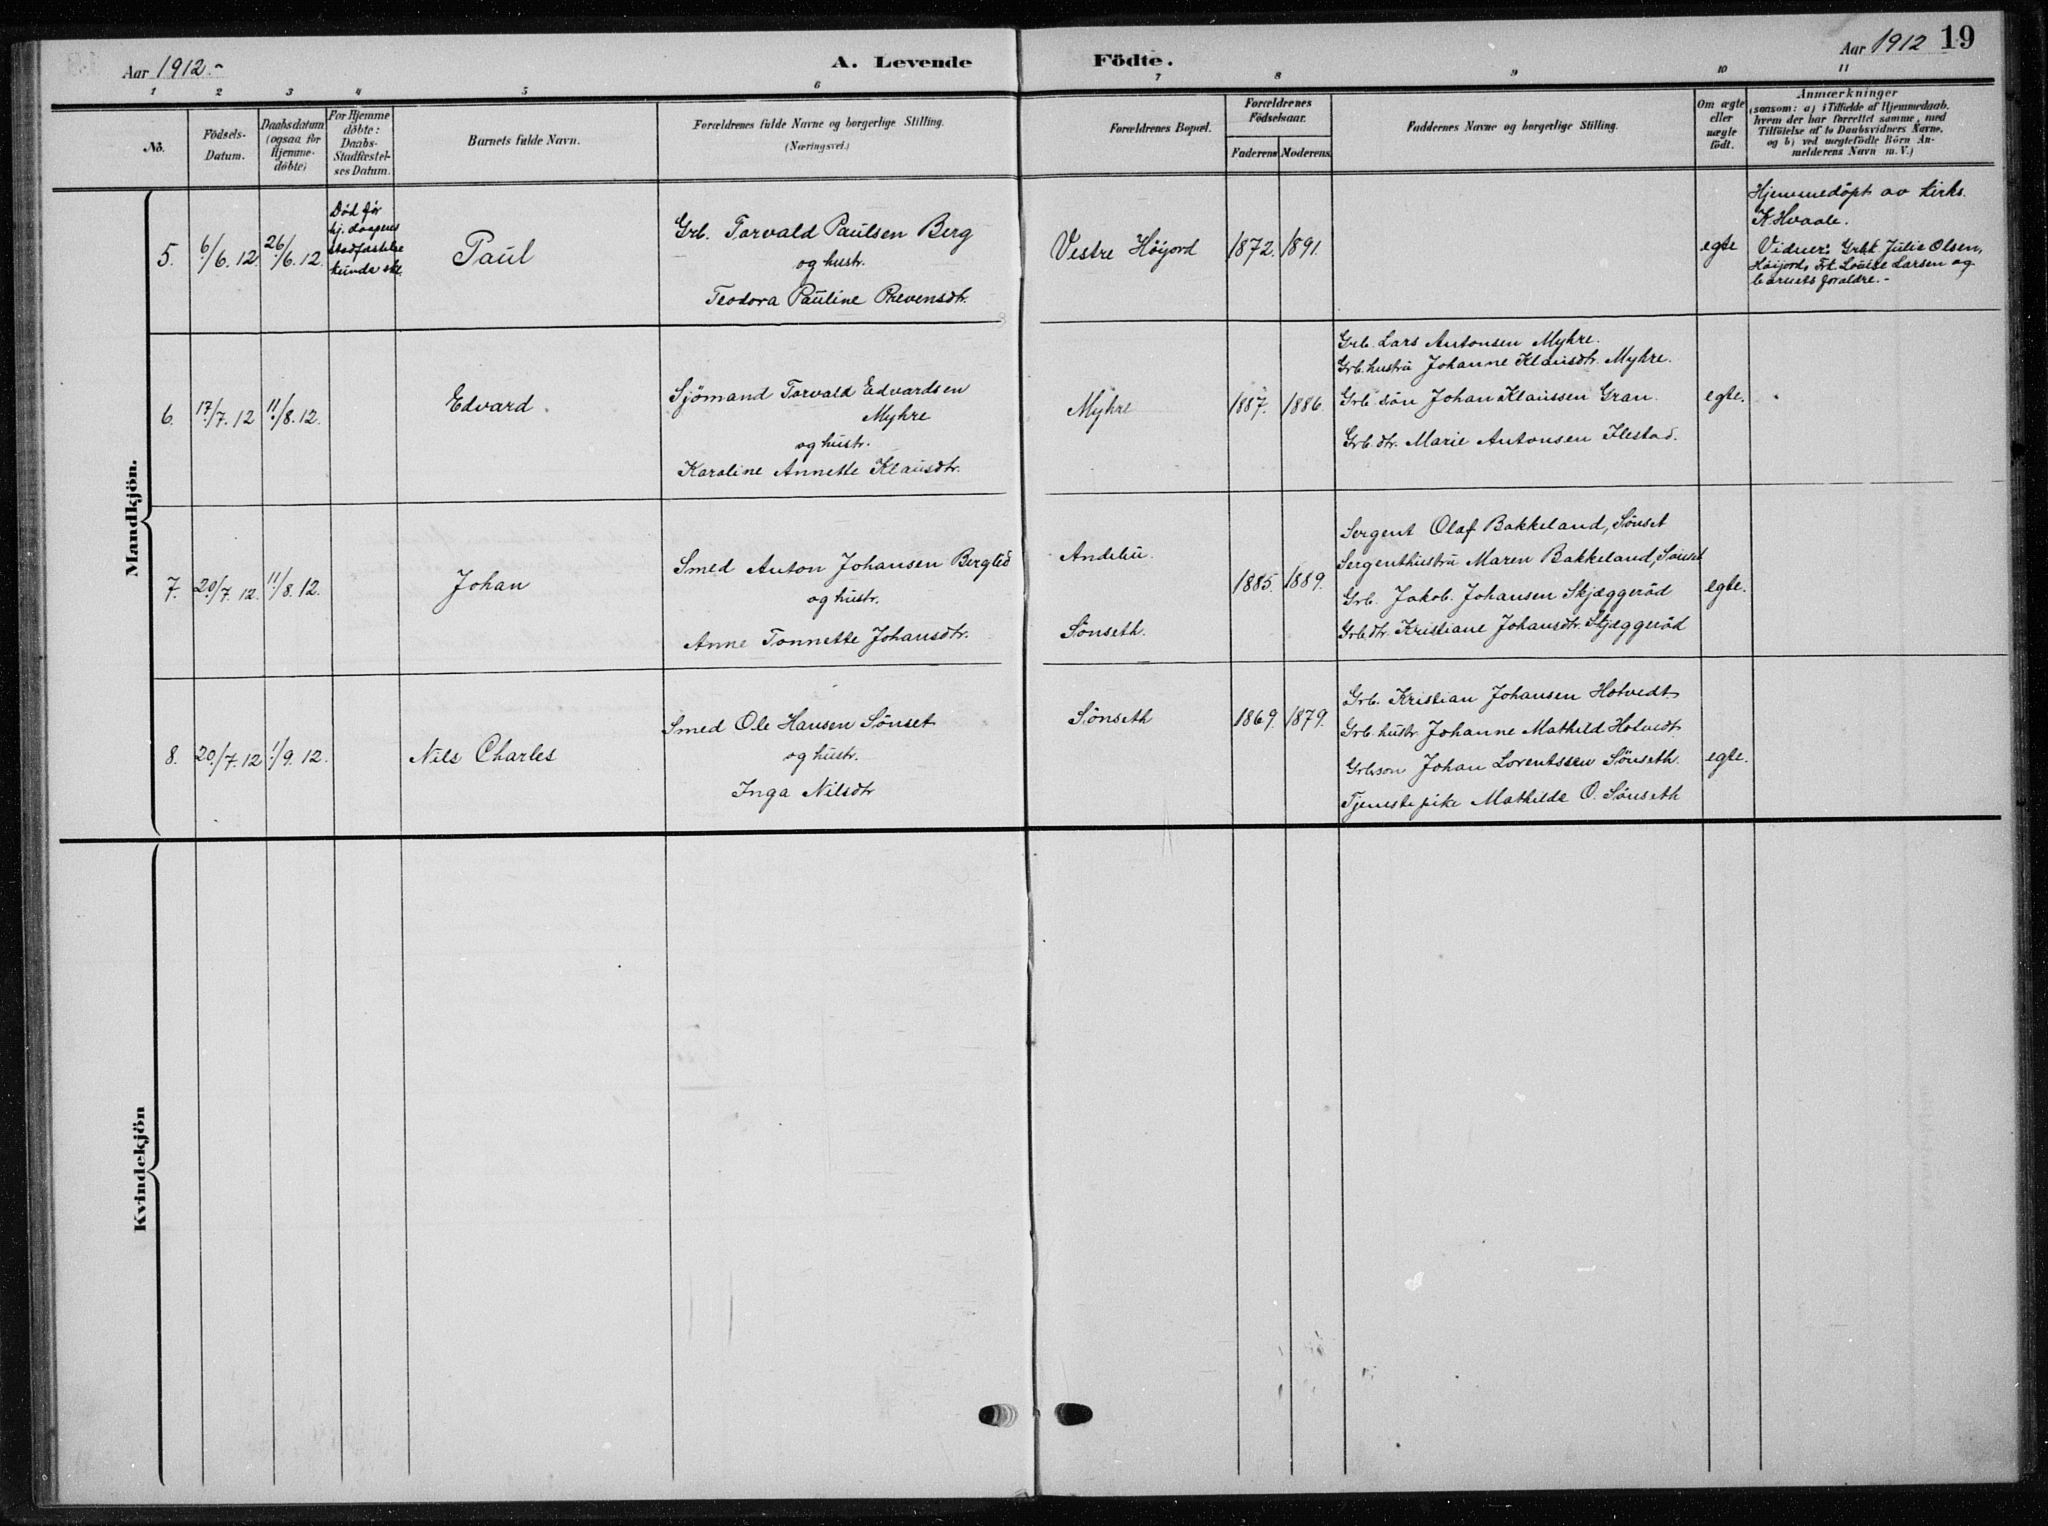 Aar 1912.-
A. Levende
Födte.
Aar 1912
19
1 2 3 4 5 6 7 8 9 10 11
No.
Födsels-
Datum.
Daabsdatum
(ogsaa for
Hjemme-
döbte)
For Hjemme
döbte:
Daabs-
Stadfæstel-
ses Datum.
Barnets fulde Navn.
Forældrenes fulde Navne og borgerlige Stilling.
(Næringsvei.)
Forældrenes Bopæl.
Forældrenes
Födselsaar.
Faderens Moderens.
Faddernes Navne og borgerlige Stilling.
Om ægte
eller
uægte
födt.
Anmærkninger
(saasom: a) i Tilfælde af Hjemmedaab.
hvem der har forrettet samme, med
Tilföielse af to Daabsvidners Navne.
og b) ved uægtefödte Börn An-
melderens Navn m. V.)
Mandkjön.
5.
6/6.12.
26/6.12.
Död før
hj. daapens
stadfæstelse
kunde ske.
Paul
Grb. Torvald Paulsen Berg
og hustr.
Teodora Pauline Prevensdtr.
Vestre Höijord
1872.
1891.
egte
Hjemmedöpt av kirks.
K. Hvaale.
Vidner: Grbk. Julie Olsen,
Höijord, Frk. Louise Larsen og
barnets foraldre.-
6.
17/7.12
11/8.12.
Edvard.
Sjömand Torvald Edvardsen
Myhre
og hustr.
Karoline Annette Klausdtr.
Myhre
1887.
1886.
Grb. Lars Antonsen Myhre.
Grb.hustru Johanne Klausdtr. Myhre.
Grb. sön Johan Klaussen Gran.
Grb.dtr. Marie Antonsen Ilestad.
egte.
7.
20/7.12.
11/8.12.
Johan
Smed Anton Johansen Bergted
og hustr.
Anne Tonnette Johansdtr.
Andebu.
Sönseth.
1885.
1889.
Sergent Olaf Bakkeland, Sönset
Sergenthustru Maren Bakkeland, Sönset
Grb. Jakob Johansen Skjæggeröd
Grb.dtr. Kristiane Johansdtr. Skjæggeröd
egte.
8.
20/7.12
1/9.12.
Nils Charles
Smed Ole Hansen Sönset
og hustr.
Inga Nilsdtr
Sönseth
1869.
1879.
Grb. Kristian Johansen Hotvedt
Grb.hustr. Johanne Mathild Hotvedt
Grb.son Johan Lorentssen Sönseth.
Tjenestepike Mathilde O. Sönseth
egte.
Kvindekjön